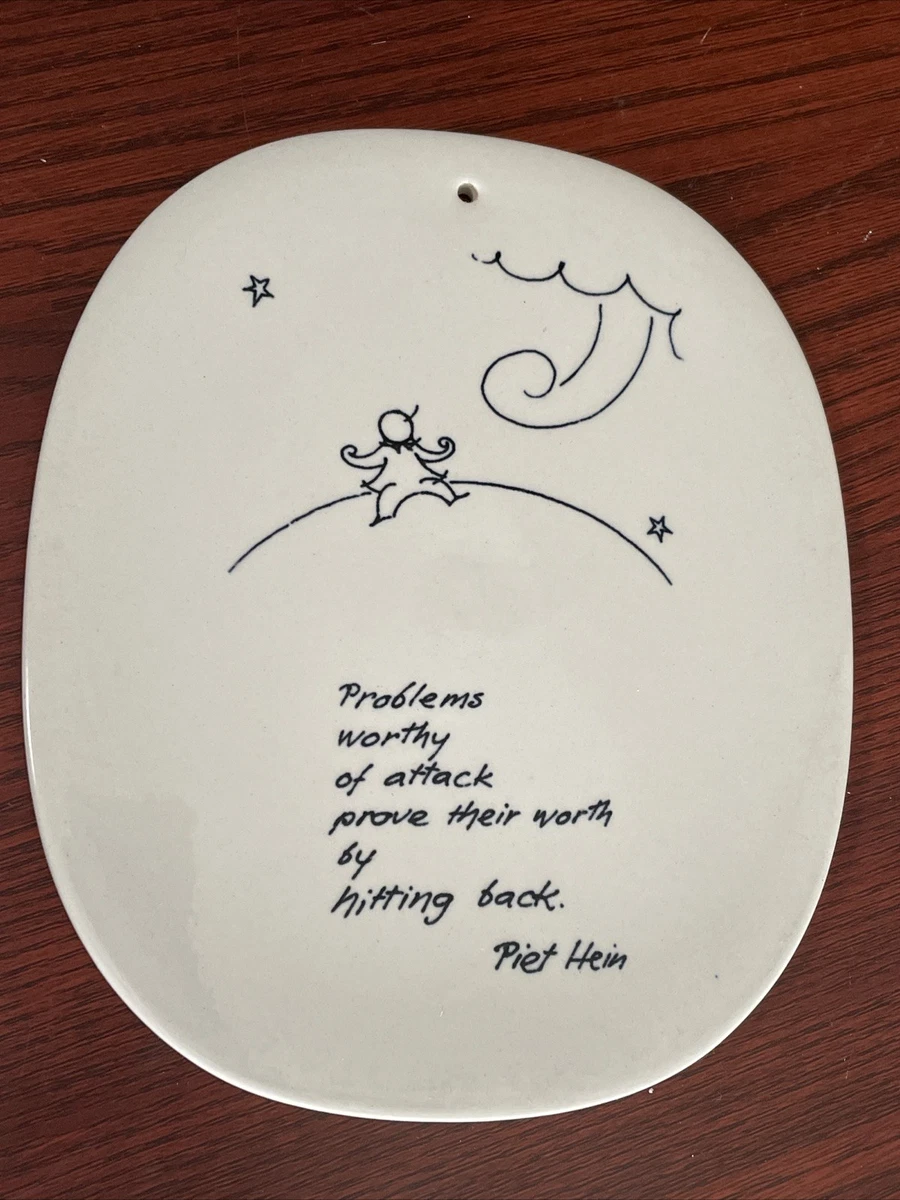 Problems
worthy
of attack
prove their worth
by
hitting back.
Piet Hein